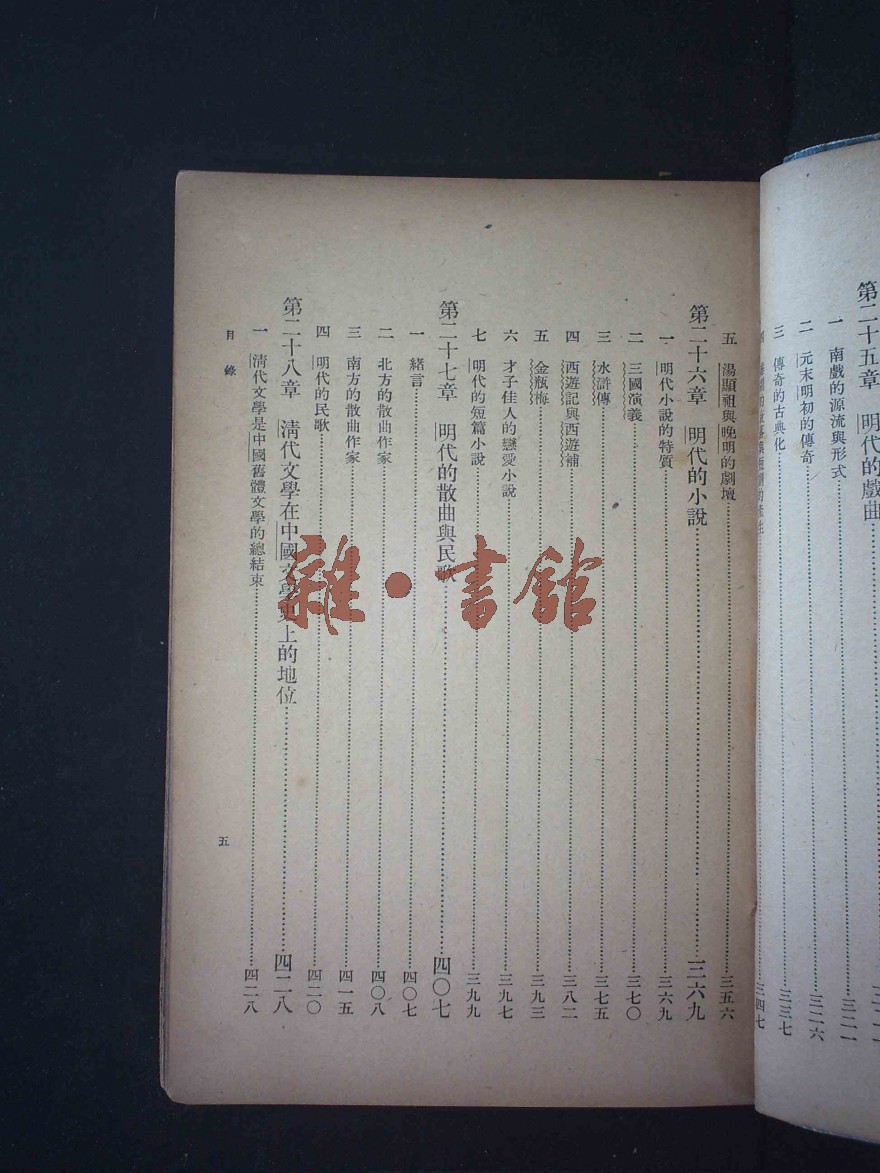 第二十五章 明代的戲曲
一 南戲的源流與形式 三二一
二 元末明初的傳奇 三二六
三 傳奇的古典化 三三七
三四七
五 湯顯祖與晚明的劇壇 三五六
第二十六章 明代的小說 三六九
一 明代小說的特質 三六九
二 三國演義 三七〇
三 水滸傳 三七五
四 西遊記與西遊補 三八二
五 金瓶梅 三九三
六 才子佳人的戀愛小說 三九七
七 明代的短篇小說 三九九
第二十七章 明代的散曲與民歌 四〇七
一 緒言 四〇七
二 北方的散曲作家 四〇八
三 南方的散曲作家 四一五
四 明代的民歌 四二〇
第二十八章 清代文學在中國文學史上的地位 四二八
一 清代文學是中國舊體文學的總結束 四二八
目錄
五
雜·書館